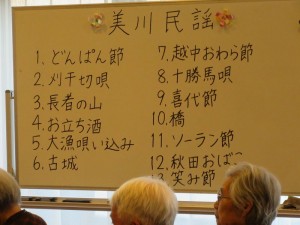 美川民謡
1. どんぱん節
2. 刈干切唄
3. 長者の山
4. お立ち酒
5. 大漁唄い込み
6. 古城
7. 越中おわら節
8. 十勝馬唄
9. 喜代節
10. 橋
11. ソーラン節
12. 秋田おばこ
13. 笑み節